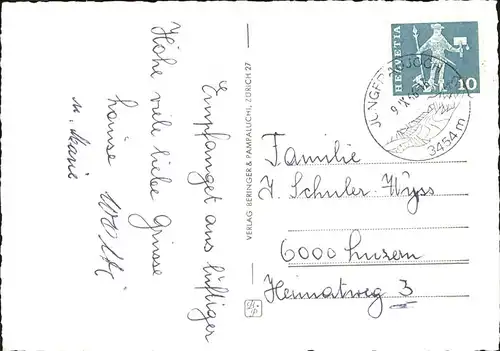 Empfanget aus luftiger
Höhe viele liebe Grüsse
u. Marie
VERLAG BERINGER & PAMPALUCHI, ZÜRICH 27
HELVETIA
10
JUNGFRAUJOCH
9.IX.
3454 m
Familie
J. Schuler-Wyss
6000 Luzern
Heimatweg 3